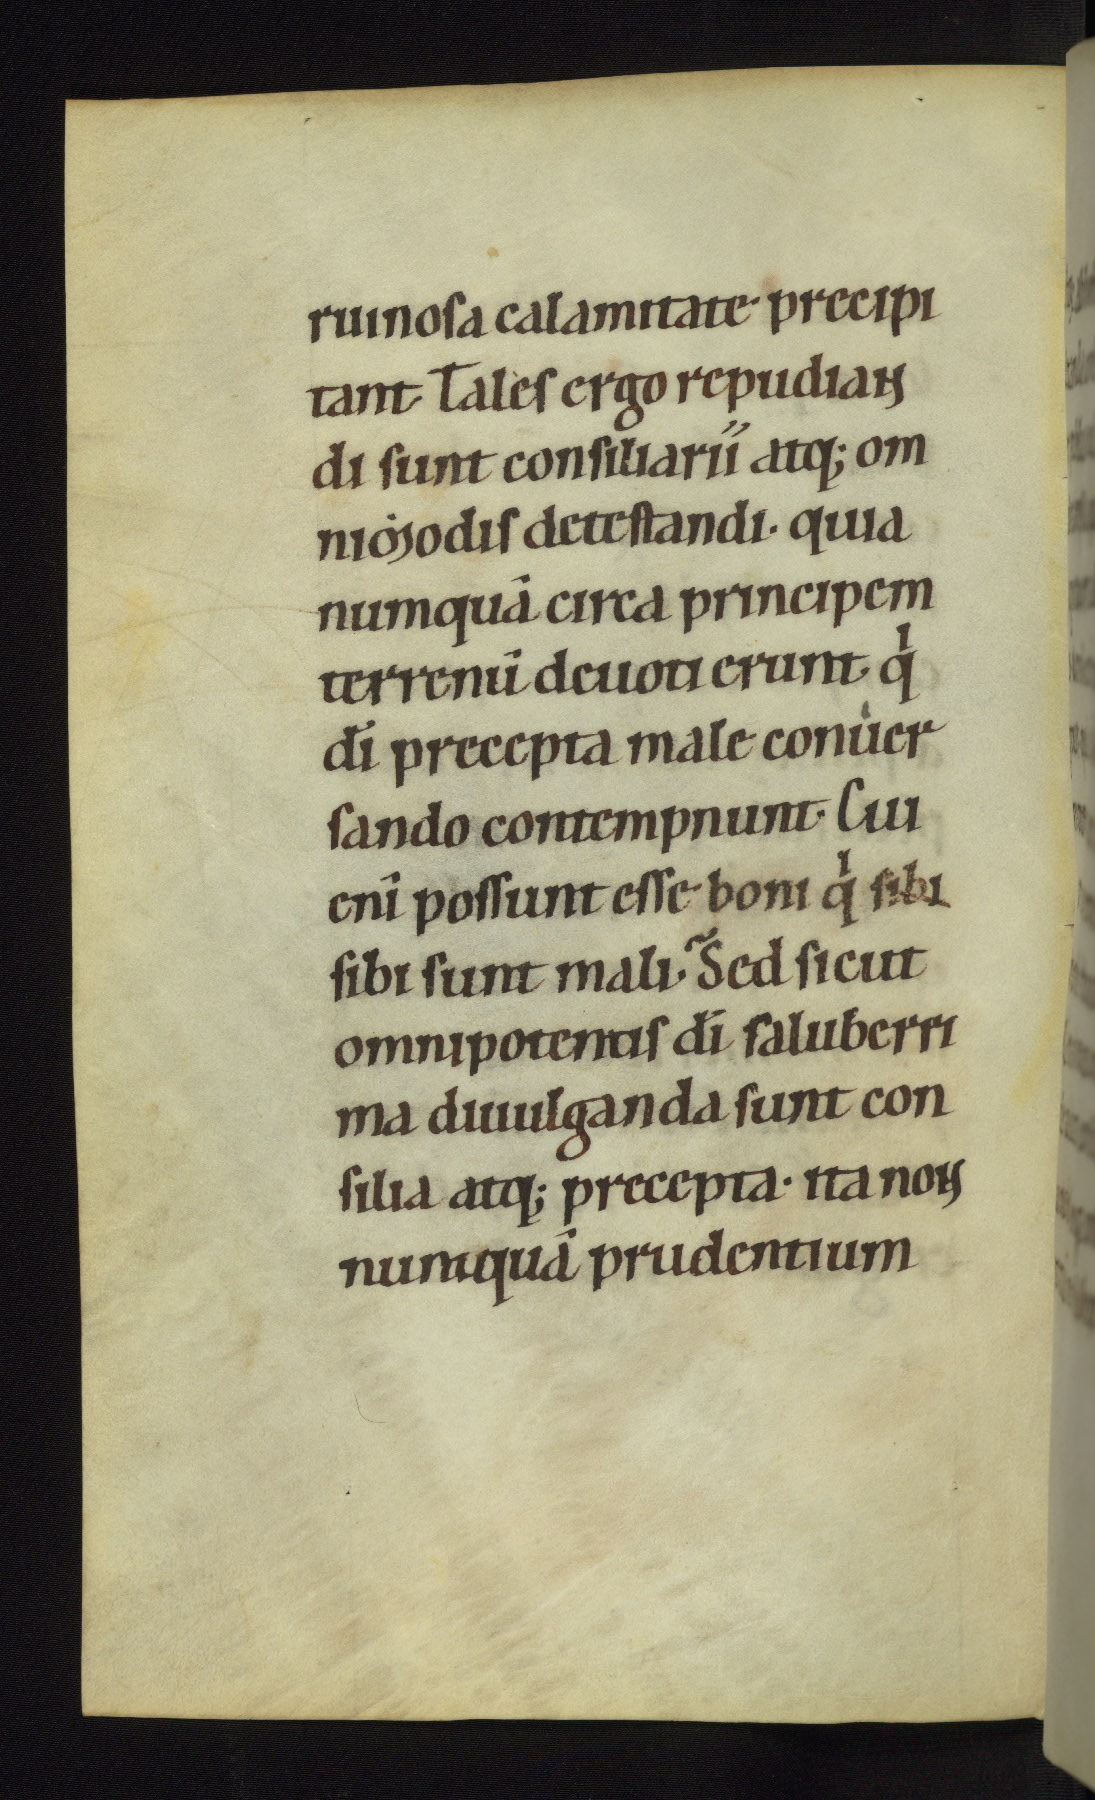 ruinosa calamitate· precipi
tant· Tales ergo repudian
di sunt consiliarii atq; om
nimodis detestandi· quia
numquā circa principem
terrenū deuoti erunt· qͥ
dī precepta male conuer
sando contempnunt· Cui
enī possunt esse boni qͥ sibi
sibi sunt mali· Sed sicut
omnipotentis dī saluberri
ma diuulganda sunt con
silia atq; precepta· ita non
numquā prudentium